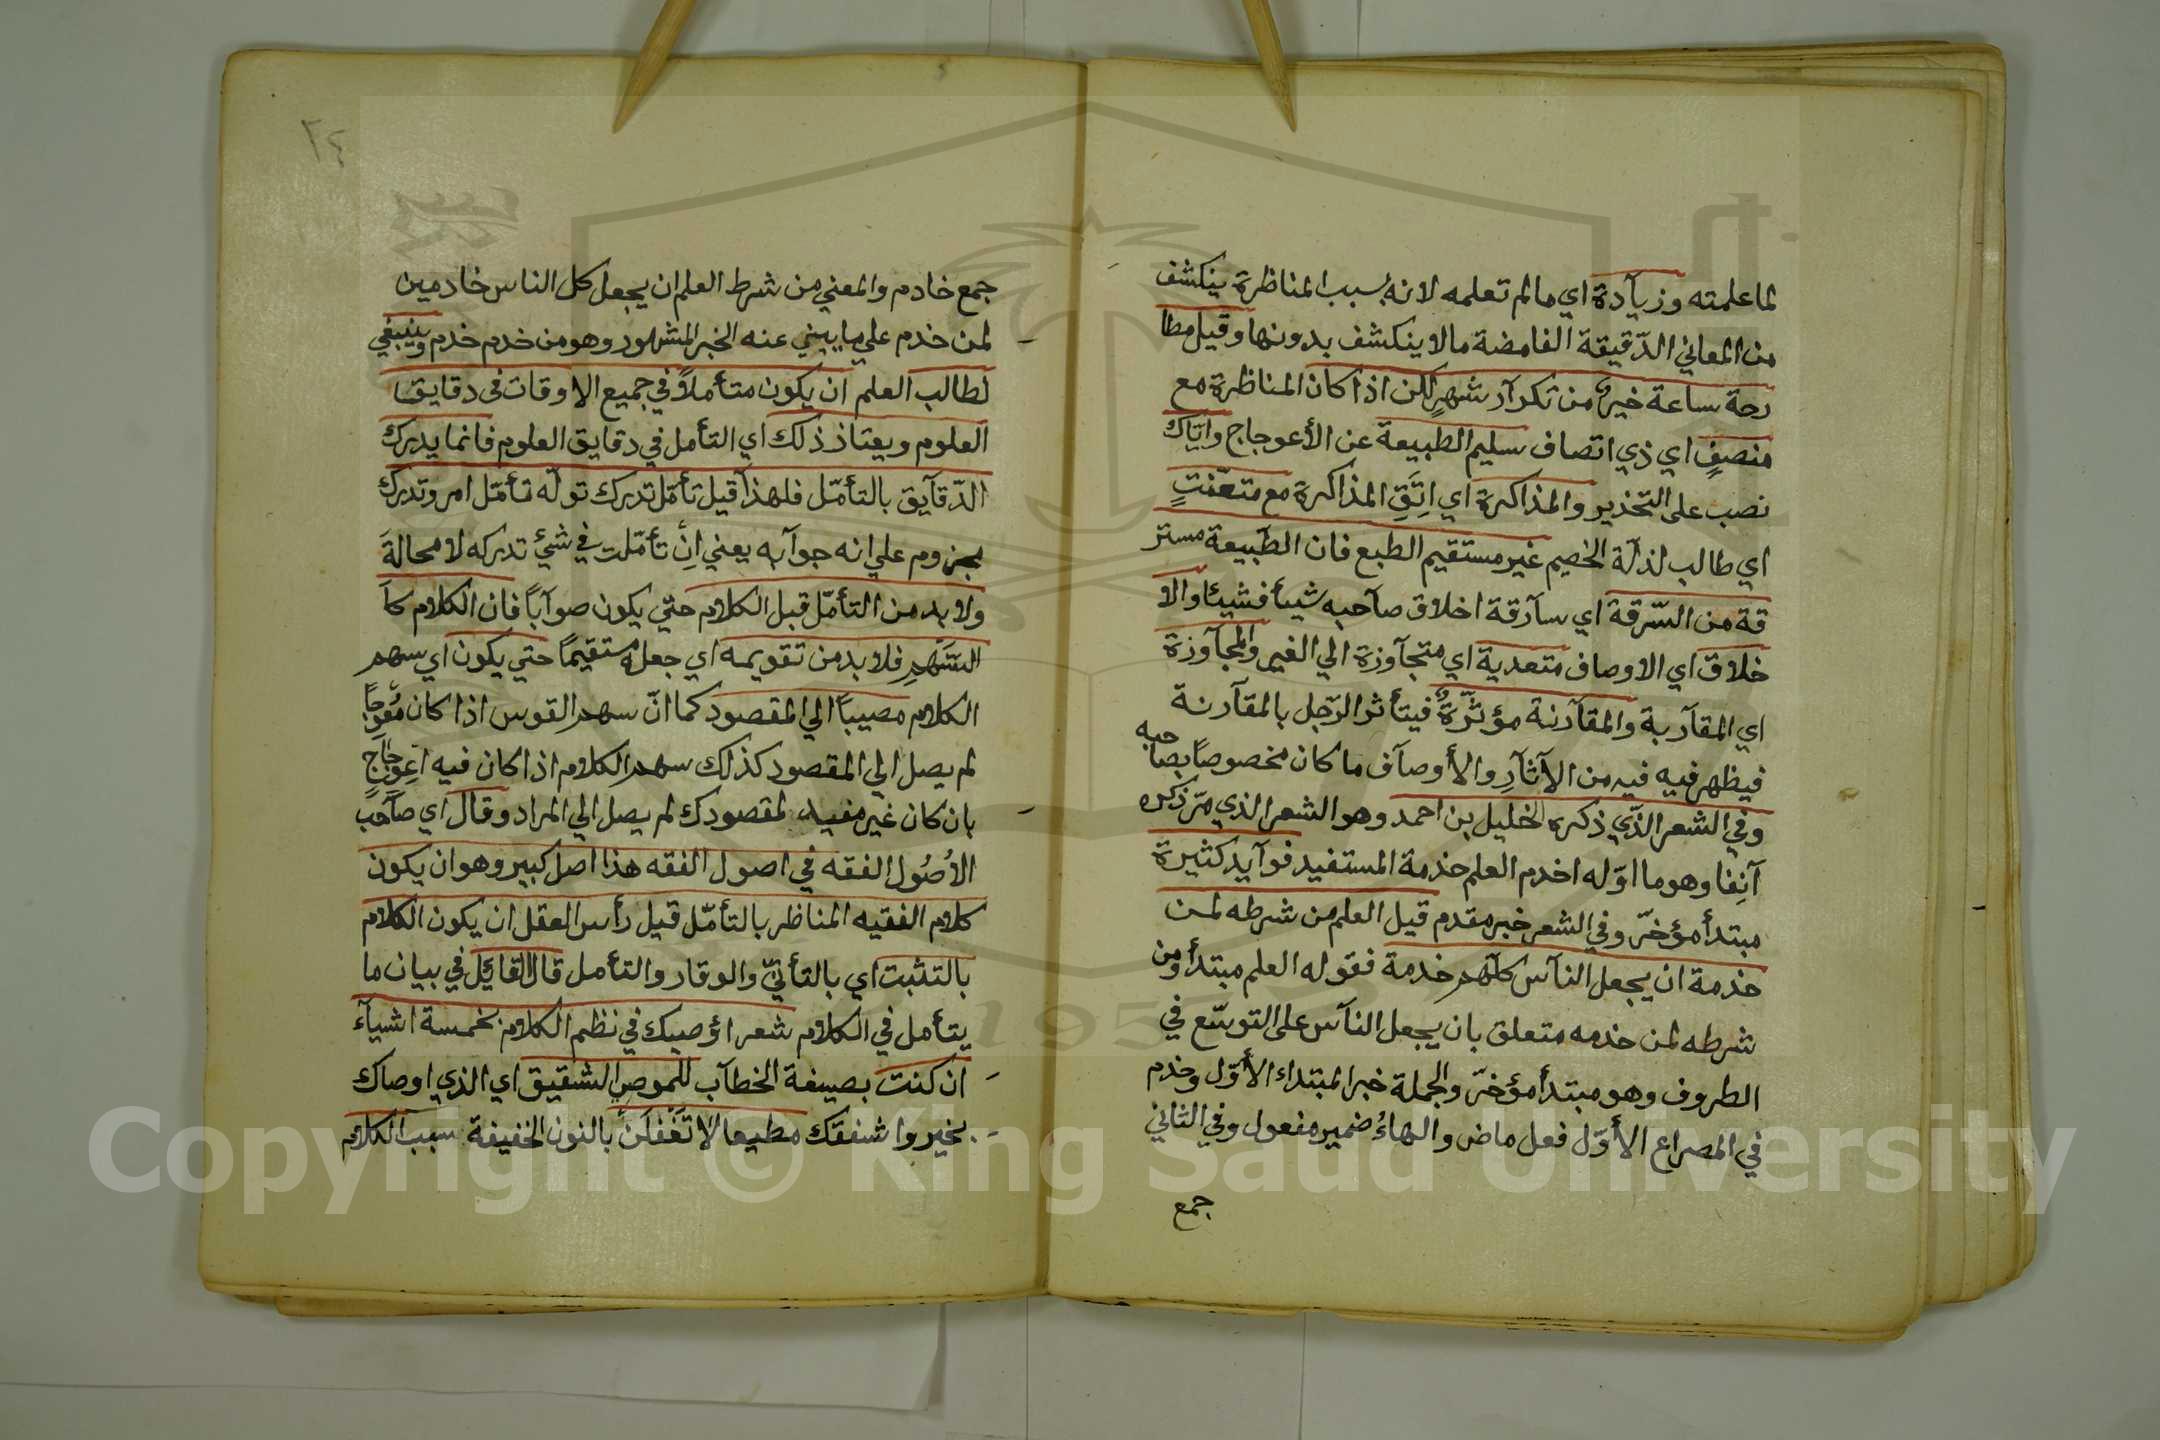 لما علمته وزيآدة اي ما لم تعلمه لانه بسبب المناظرة ينكشف
من المعاني الدّقيقة الغامضة ما لا ينكشف بدونها وقيل مطا
رحة ساعة خير من تكرآر شهرٍ لكن اذا كان المناظرة مع
منصفٍ اي ذي اتصاف سليم الطبيعة عن الأعوجاج وايّاك
نصب على التحذير والمذاكرة اي اِتَّقِ المذاكرة مع متعنّتٍ
اي طالب لذلّة الخصيم غير مستقيم الطبع فان الطّبيعة مستر
قة من السّرقة اي سآرقة اخلاق صآحبه شيأ فشيئا والا
خلاق اي الاوصاف متعدية اي متجآوزة الي الغير والمجآوزة
اي المقآربة والمقآرنة مؤثّرةٌ فيتأثر الرّجل بالمقآرنة
فيظهر فيه فيه من الآثآرِ والأوصآف ما كان مخصوصاً بصاحبه
وفي الشعر الذّي ذكره الخليل بن احمد وهو الشعر الذي مرّ ذكره
آنِفا وهو ما اوّله اخدم العلم خدمة المستفيد فوآيد كثيرة
مبتدأ مؤخرّ وفي الشعر خبر مقدم قيل العلم من شرطه لمن
خدمة ان يجعل النآس كلّهم خدمة فقوله العلم مبتدأ ومن
شرطه لمن خدمه متعلق بان يجعل النآس على التوسّع في
الظروف وهو مبتدأ مؤخرّ والجملة خبر المبتداء الأوّل وخدم
في المصراع الأوّل فعل ماض والهاءُ ضمير مفعول وفي الثاني
جمع
٢٤
جمع خادم والمعني من شرط العلم ان يجعل كل الناس خادمين
لمن خدم علي ما يبني عنه الخبر المشهور وهو من خدم خدم وينبغي
لطالب العلم ان يكون متأملاً في جميع الاوقات فى دقايق
العلوم ويعتاذ ذلك اي التأمل في دقايق العلوم فانما يدرك
الدّقآيق بالتأمّل فلهذا قيل تأمّل تدرك توله تأمّل امر وتدرك
مجزوم علي انه جوآبه يعني اِن تأمّلت في شئ تدركه لا محالةَ
ولا بد من التأمّل قبل الكلام حتي يكون صوآباً فان الكلام كا
السَّهْمِ فلا بد من تقويمه اي جعله مستقيماً حتي يكون اي سهم
الكلام مصيباً الي المقصود كما انّ سهم القوس اذا كان مُعوجاً
لم يصل الي المقصود كذلك سهم الكلام اذا كان فيه اعوجاج
بان كان غير مفيد لمقصودك لم يصل الي المراد وقال اي صآحب
الاُصُول الفقه في اصول الفقه هذا اصل كبير وهو ان يكون
كلام الفقيه المناظر بالتأمّل قيل رأس العقل ان يكون الكلام
بالتثبت اي بالتأنيّ والوقار والتأمل قال القائل في بيان ما
يتأمل في الكلام شعر اوصيك في نظم الكلام بخمسة اشيآء
ان كنت بصيغة الخطآب للموصِ الشفيق اي الذي اوصاك
بخير واشفقك مطيعا لا تَغْفلَنْ بالنون الخفيفة سبب الكلام
Copyright © King Saud University